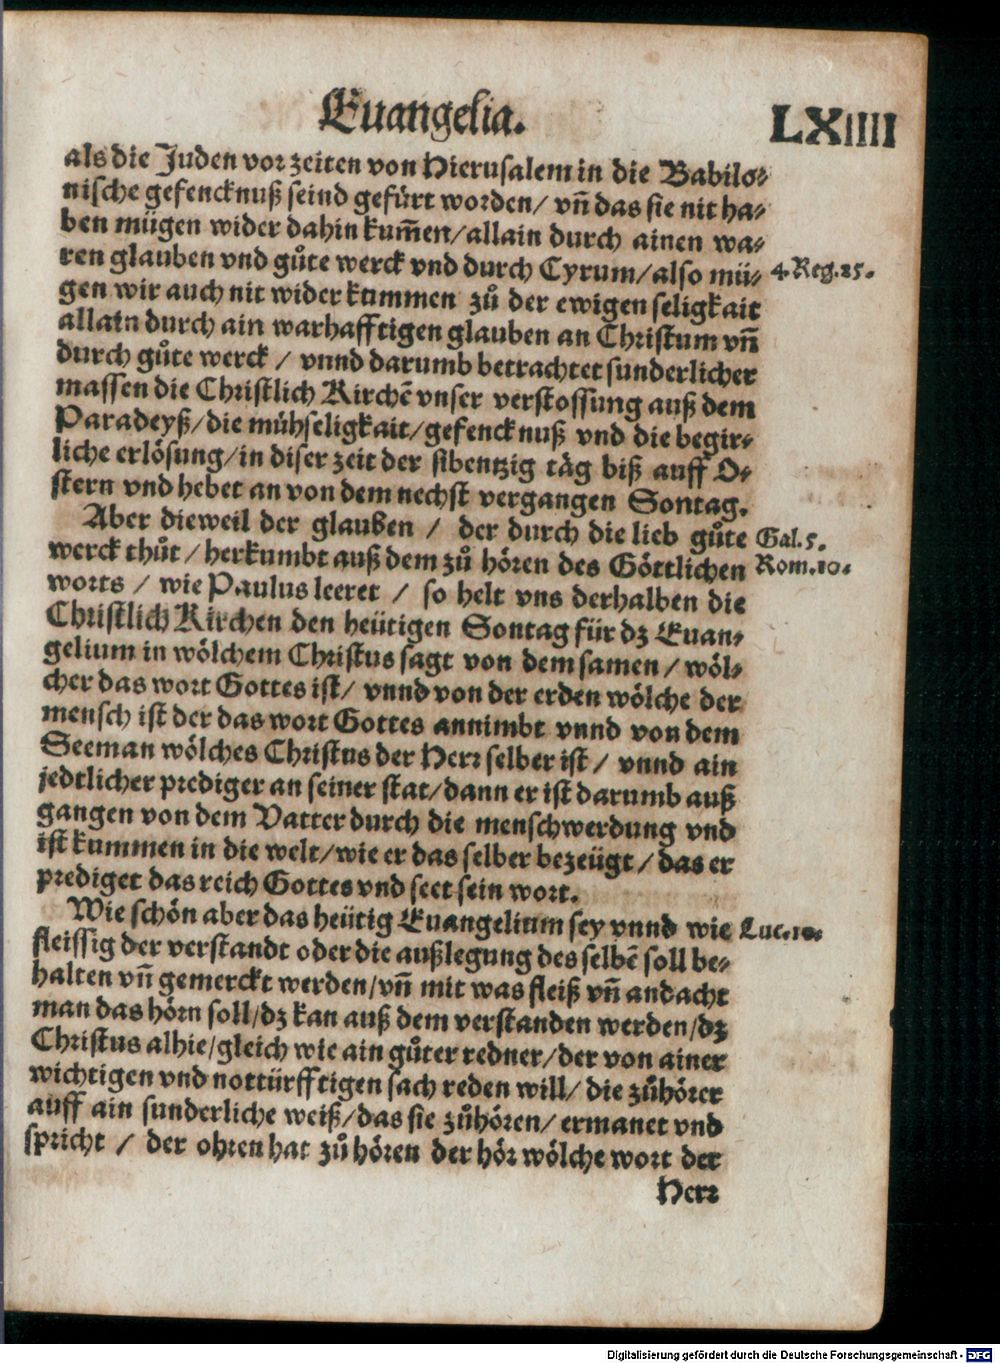 Euangelia.
LXIIII
als die Juden vor zeiten von Hierusalem in die Babilo⸗
nische gefencknuß seind gefürt worden/ vñ das sie nit ha⸗
ben mügen wider dahin kum̃en/ allain durch ainen wa⸗
ren glauben vnd gůte werck vnd durch Cyrum/ also mü⸗
4. Reg. 25.
gen wir auch nit wider kummen zů der ewigen seligkait
allain durch ain warhafftigen glauben an Christum vñ
durch gůte werck / vnnd darumb betrachtet sunderlicher
massen die Christlich Kirchẽ vnser verstossung auß dem
Paradeyß/ die mühseligkait/ gefencknuß vnd die begir⸗
liche erlösung/ in diser zeit der sibentzig täg biß auff O⸗
stern vnd hebet an von dem nechst vergangen Sontag.
Aber dieweil der glauben / der durch die lieb gůte
Gal. 5.
werck thůt / herkumbt auß dem zů hören des Göttlichen
Rom. 10.
worts / wie Paulus leeret / so helt vns derhalben die
Christlich Kirchen den heütigen Sontag für dz Euan⸗
gelium in wölchem Christus sagt von dem samen / wöl⸗
cher das wort Gottes ist/ vnnd von der erden wölche der
mensch ist der das wort Gottes annimbt vnnd von dem
Seeman wölches Christus der Herr selber ist / vnnd ain
jedtlicher prediger an seiner stat/ dann er ist darumb auß
gangen von dem Vatter durch die menschwerdung vnd
ist kummen in die welt/ wie er das selber bezeügt / das er
prediget das reich Gottes vnd seet sein wort.
Wie schön aber das heütig Euangelium sey vnnd wie
Luc. 10.
fleissig der verstandt oder die außlegung des selbẽ soll be⸗
halten vñ gemerckt werden/ vñ mit was fleiß vñ andacht
man das hörn soll/ dz kan auß dem verstanden werden/ dz
Christus alhie/ gleich wie ain gůter redner/ der von ainer
wichtigen vnd nottürfftigen sach reden will/ die zůhörer
auff ain sunderliche weiß/ das sie zůhören/ ermanet vnd
spricht / der ohren hat zů hören der hör wölche wort der
Herr
Digitalisierung gefördert durch die Deutsche Forschungsgemeinschaft - DFG